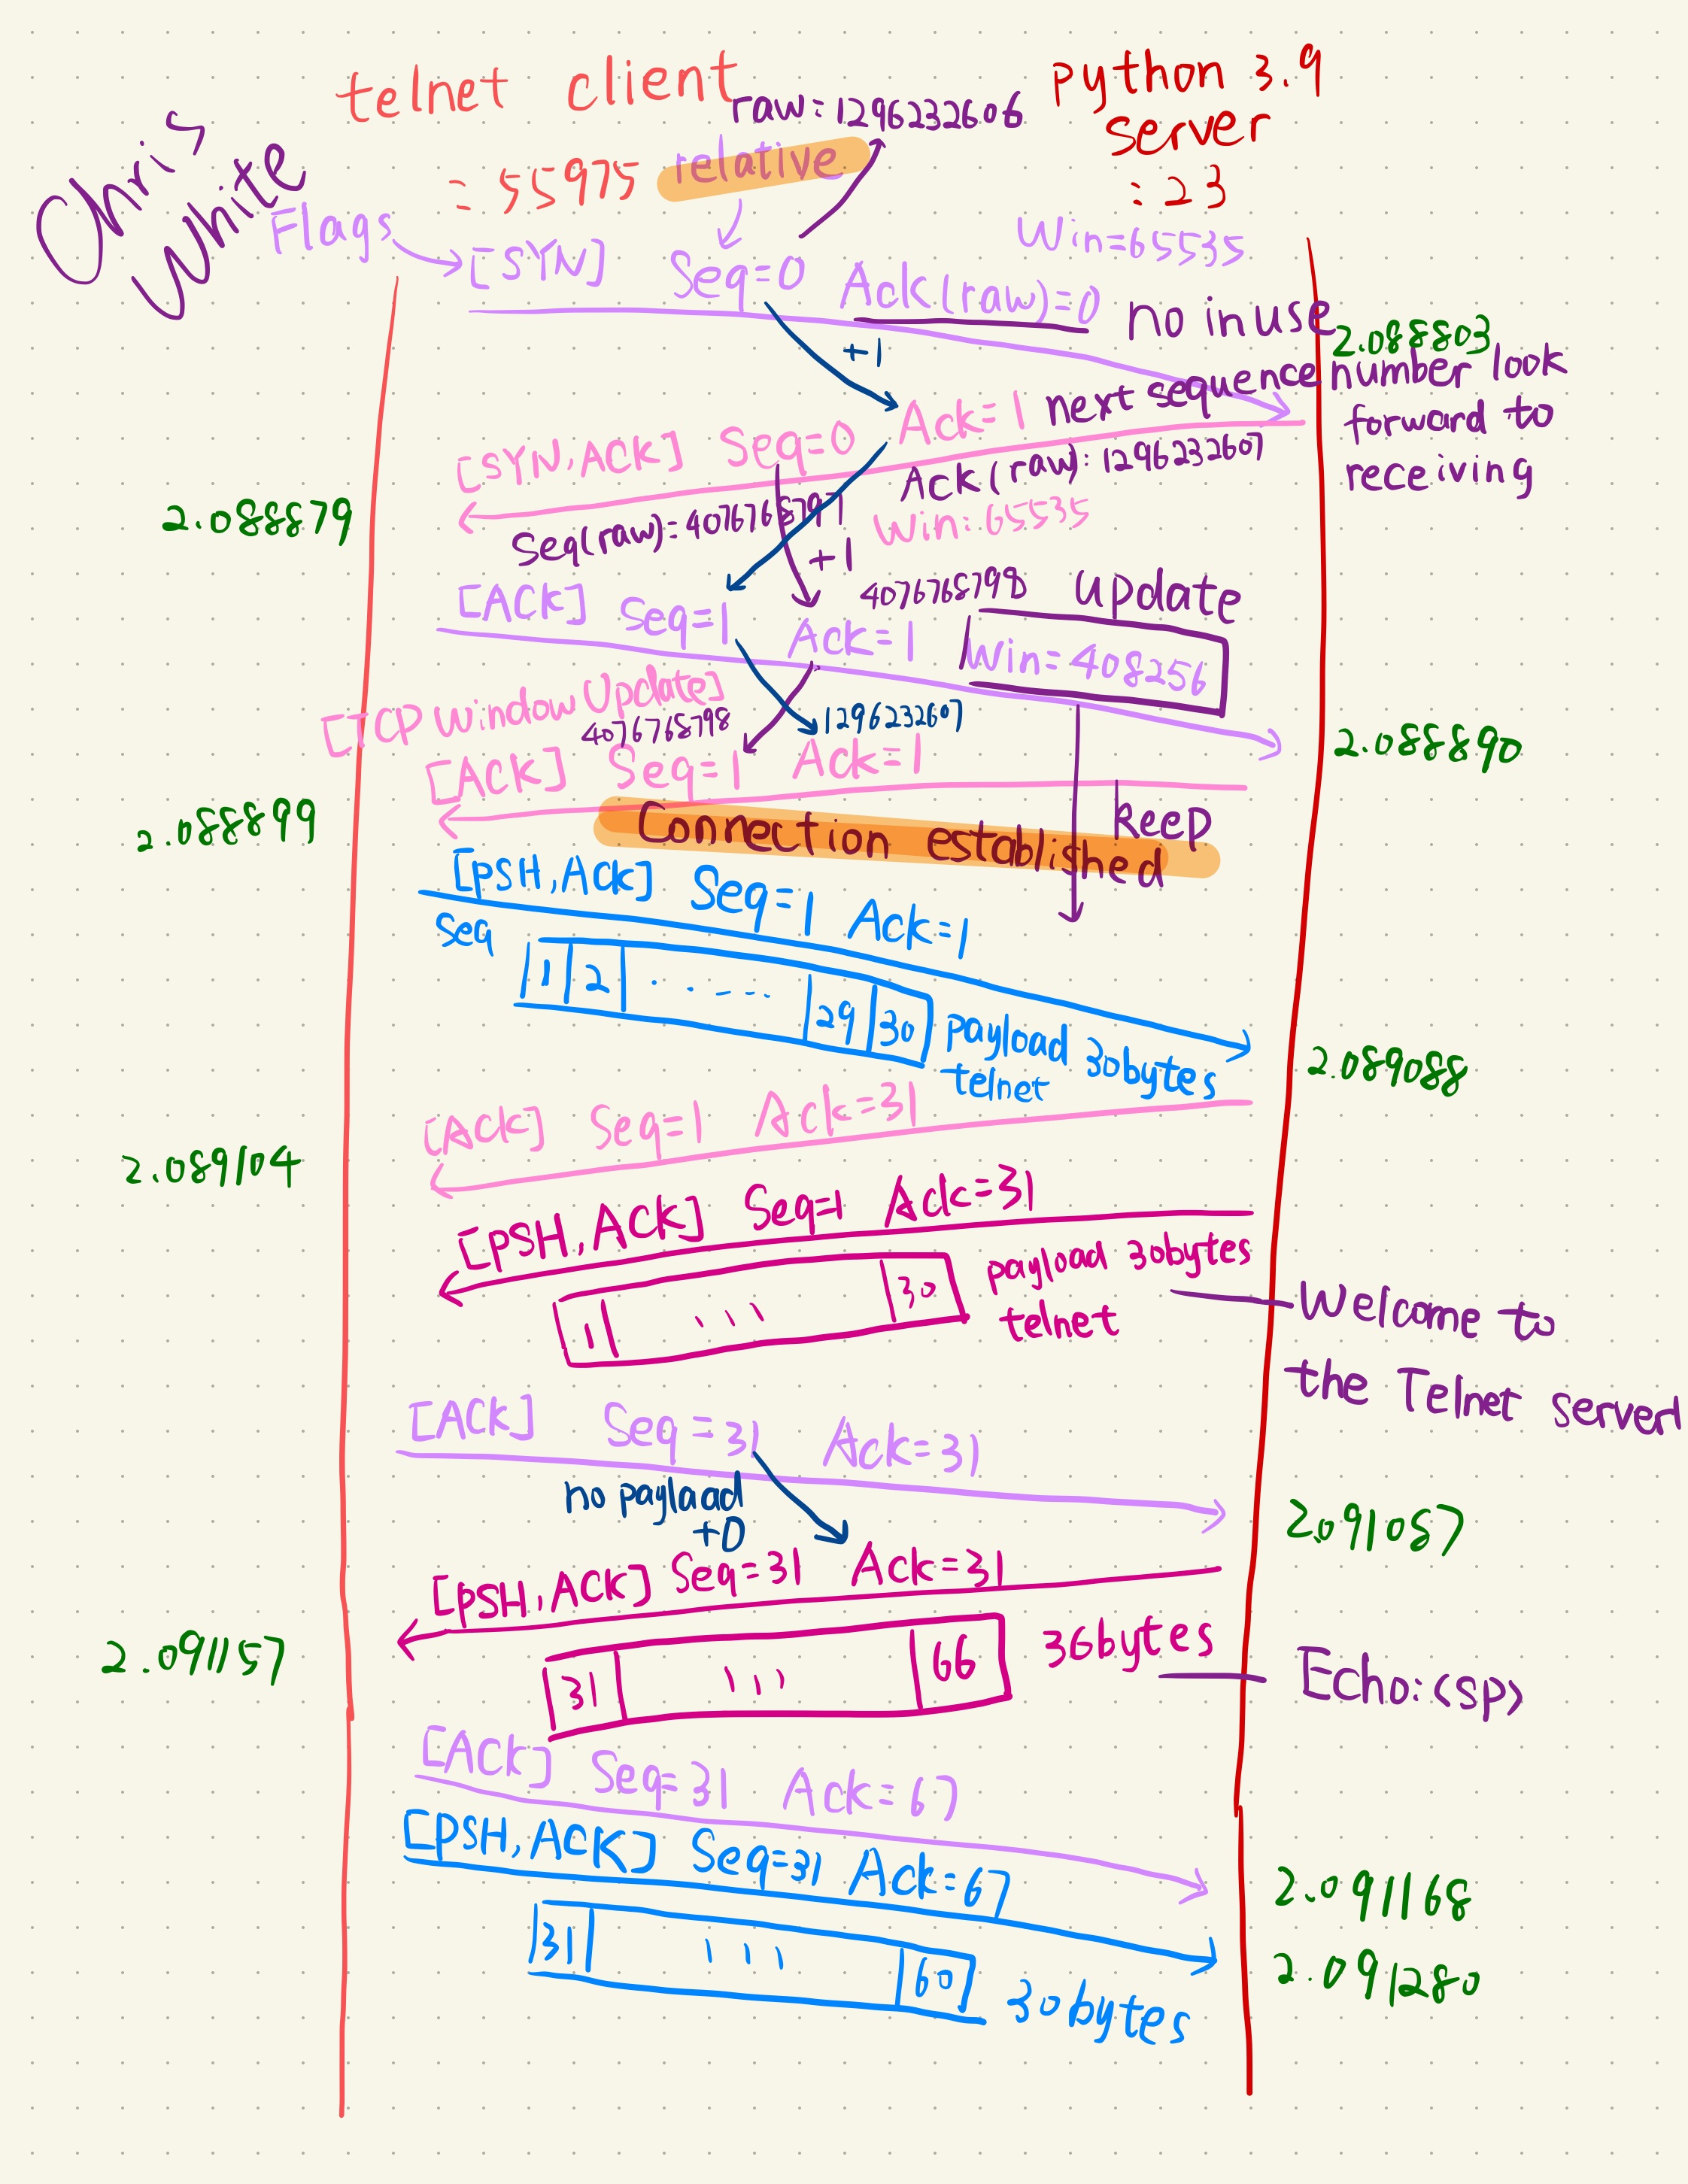 Chris
White
telnet client
:55975
raw:1296232606
relative
python 3.9
server
:23
Flags
[SYN] Seq=0 Ack(raw)=0 no inuse
Win=65535
2.088803
+1
[SYN,ACK] Seq=0 Ack=1 next sequence number look
forward to
receiving
Ack(raw):1296232607
2.088879
Seq(raw)=4076768797
Win:65535
+1
4076768798 update
[ACK] Seq=1 Ack=1 Win=408256
[TCP Window Update]
4076768798
1296232607
2.088890
[ACK] Seq=1 Ack=1
2.088899
keep
Connection established
[PSH,Ack] Seq=1 Ack=1
Seq
1 2 ..---.. 29 30 payload 30bytes
telnet
2.089088
[Ack] Seq=1 Ack=31
2.089104
[PSH,ACK] Seq=1 Ack=31
1 ... 30 payload 30bytes
telnet
Welcome to
the Telnet server!
[ACK] Seq=31 Ack=31
no paylaad
+0
2.091087
[PSH,ACK] Seq=31 Ack=31
2.091157
31 ... 66 36bytes
Echo:<sp>
[ACK] Seq=31 Ack=67
[PSH,ACK] Seq=31 Ack=67
2.091168
31 ... 60 30bytes
2.091280